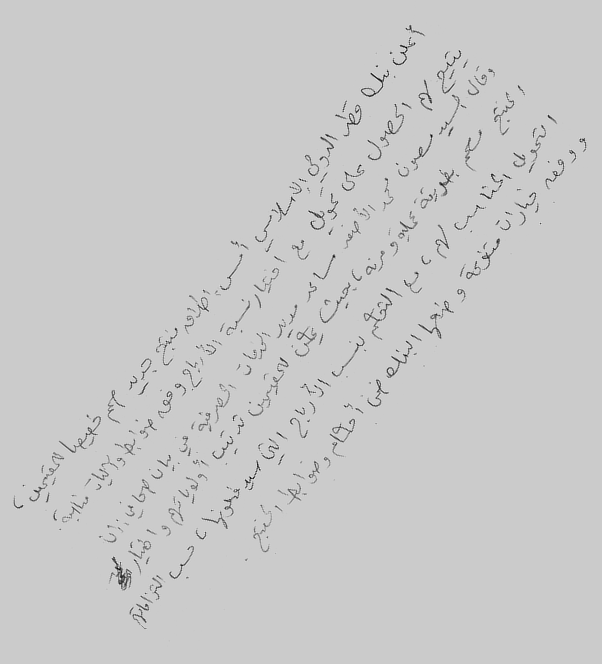 أعلن بنك قطر الدولي الإسلامي أمس، إطلاق منتج جديد صمم خصيصا للمقيمين،
يتيح لهم الحصول على تمويل مع اختيار نسبة الأرباح وفق ضوابط وآليات مناسبة.
وقال السيد محمد الأصفر مساعد مدير الخدمات المصرفية في بيان صحافي: إن
المنتج مصمم بطريقة عملية ومرنة، بحيث يمكن للمقيمين ترتيب أولوياتهم واختيار
التمويل المناسب لهم، مع التحكم بنسب الأرباح التي سيدفعونها، حسب التزاماتهم
ووفق خيارات متنوعة وضعها البنك ضمن أحكام وضوابط المنتج.